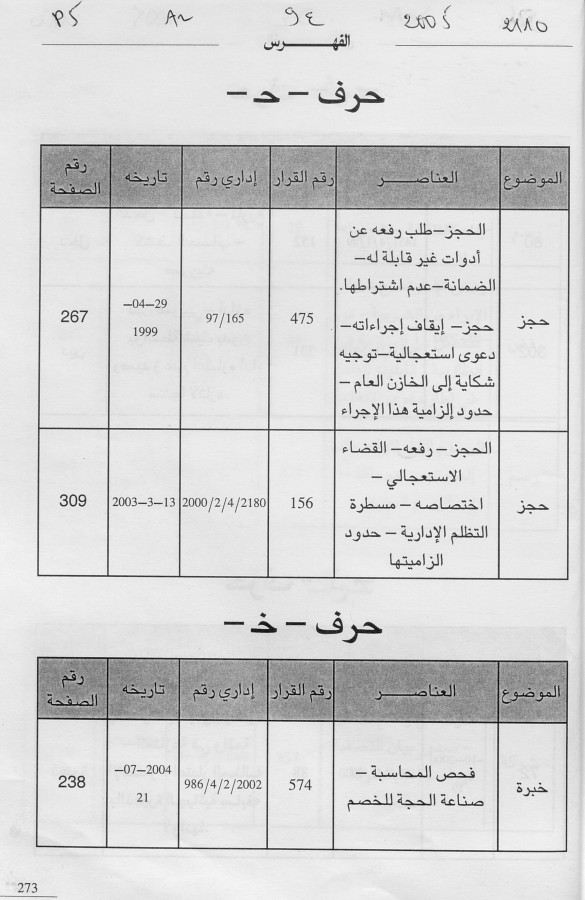 PS Ar 94 2005 2110
الفهـــرس
حرف – حـ –
الموضوع العناصــــر رقم القرار إداري رقم تاريخه رقم الصفحة
حجز الحجز–طلب رفعه عن أدوات غير قابلة له– الضمانة–عدم اشتراطها. حجز– إيقاف إجراءاته– دعوى استعجالية–توجيه شكاية إلى الخازن العام – حدود إلزامية هذا الإجراء 475 97/165 29–04– 1999 267
حجز الحجز – رفعه– القضاء الاستعجالي – اختصاصه – مسطرة التظلم الإدارية – حدود الزاميتها 156 2000/2/4/2180 13–3–2003 309
حرف – خـ –
الموضوع العناصــــر رقم القرار إداري رقم تاريخه رقم الصفحة
خبرة فحص المحاسبة – صناعة الحجة للخصم 574 986/4/2/2002 2004–07– 21 238
273